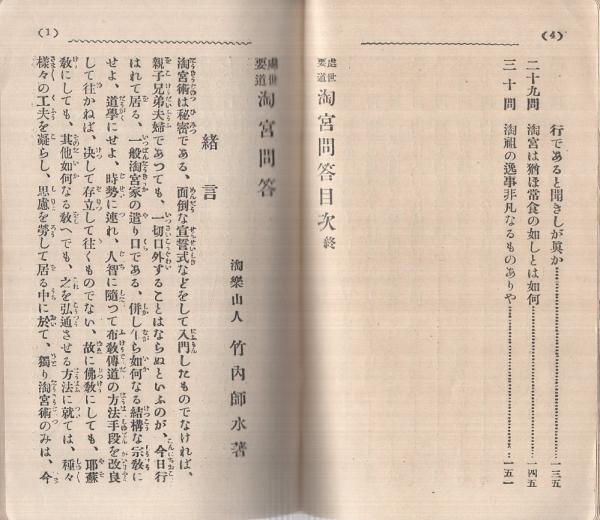 (4)
行であると聞きしが眞か…………一三五
二十九問 淘宮は猶ほ常食の如しとは如何…………一四五
三十問 淘祖の逸事非凡なるものありや…………一五一
處世要道 淘宮問答目次 終
(1)
處世要道 淘宮問答
淘樂山人 竹內師水著
緒言
淘宮術は秘密である、面倒な宣誓式などをして入門したものでなければ、
親子兄弟夫婦であつても、一切口外することはならぬといふのが、今日行
はれて居る、一般淘宮家の遣り口である、併しながら如何なる結構な宗教に
せよ、道學にせよ、時勢に連れ、人智に隨つて布教傳道の方法手段を改良
して往かねば、決して存立して往くものでない、故に佛教にしても、耶蘇
教にしても、其他如何なる教へでも、之を弘通させる方法に就ては、種々
樣々の工夫を凝らし、思慮を勞して居る中に於て、獨り淘宮術のみは、今